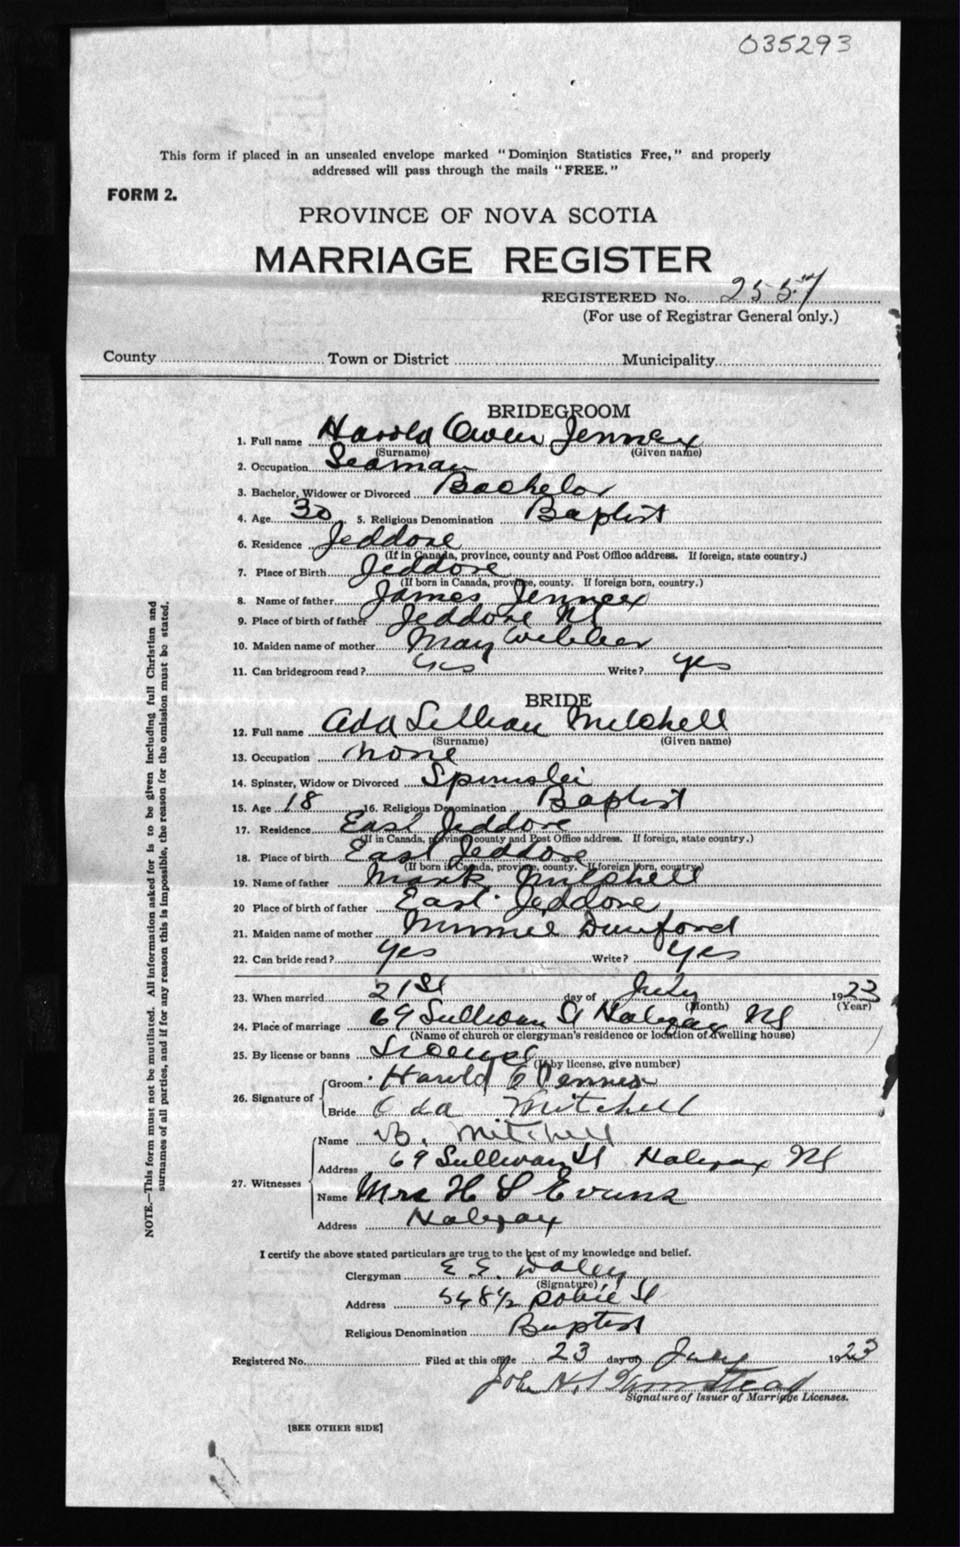 035293
This form if placed in an unsealed envelope marked "Dominion Statistics Free," and properly
addressed will pass through the mails "FREE."
FORM 2.
PROVINCE OF NOVA SCOTIA
MARRIAGE REGISTER
REGISTERED No. 2557
(For use of Registrar General only.)
County Town or District Municipality
BRIDEGROOM
1. Full name Harold Owen Jennex
(Surname) (Given name)
2. Occupation Seaman
3. Bachelor, Widower or Divorced Bachelor
4. Age 30 5. Religious Denomination Baptist
6. Residence Jeddore
(If in Canada, province, county and Post Office address. If foreign, state country.)
7. Place of Birth Jeddore
(If born in Canada, province, county. If foreign born, country.)
8. Name of father James Jennex
9. Place of birth of father Jeddore NS
10. Maiden name of mother May Webber
11. Can bridegroom read? Yes Write? yes
BRIDE
12. Full name Ada Lillian Mitchell
(Surname) (Given name)
13. Occupation none
14. Spinster, Widow or Divorced Spinster
15. Age 18 16. Religious Denomination Baptist
17. Residence East Jeddore
(If in Canada, province, county and Post Office address. If foreign, state country.)
18. Place of birth East Jeddore
(If born in Canada, province, county. If foreign born, country)
19. Name of father Mark Mitchell
20 Place of birth of father East Jeddore
21. Maiden name of mother Minnie
22. Can bride read? yes Write? yes
23. When married 21st day of July 1923
(Month) (Year)
24. Place of marriage 69 Sullivan St Halifax NS
(Name of church or clergyman's residence or location of dwelling house)
25. By license or banns License
(If by license, give number)
26. Signature of Groom Harold O Jennex
Bride Ada Mitchell
27. Witnesses Name Mitchell
Address 69 Sullivan St Halifax NS
Name Mrs H S Evans
Address Halifax
I certify the above stated particulars are true to the best of my knowledge and belief.
Clergyman E. S. Daley
(Signature)
Address 548½ Robie St
Religious Denomination Baptist
Registered No. Filed at this office 23 day of July 1923
John H
Signature of Issuer of Marriage Licenses.
[SEE OTHER SIDE]
NOTE.—This form must not be mutilated. All information asked for is to be given including full Christian and
surnames of all parties, and if for any reason this is impossible, the reason for the omission must be stated.